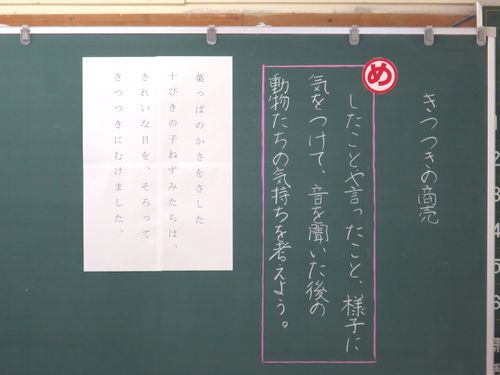 きつつきの商売
め
したことや言ったこと、様子に
気をつけて、音を聞いた後の
動物たちの気持ちを考えよう。
葉っぱのかさをさした
十ぴきの子ねずみたちは、
きれいな目を、そろって
きつつきにむけました。